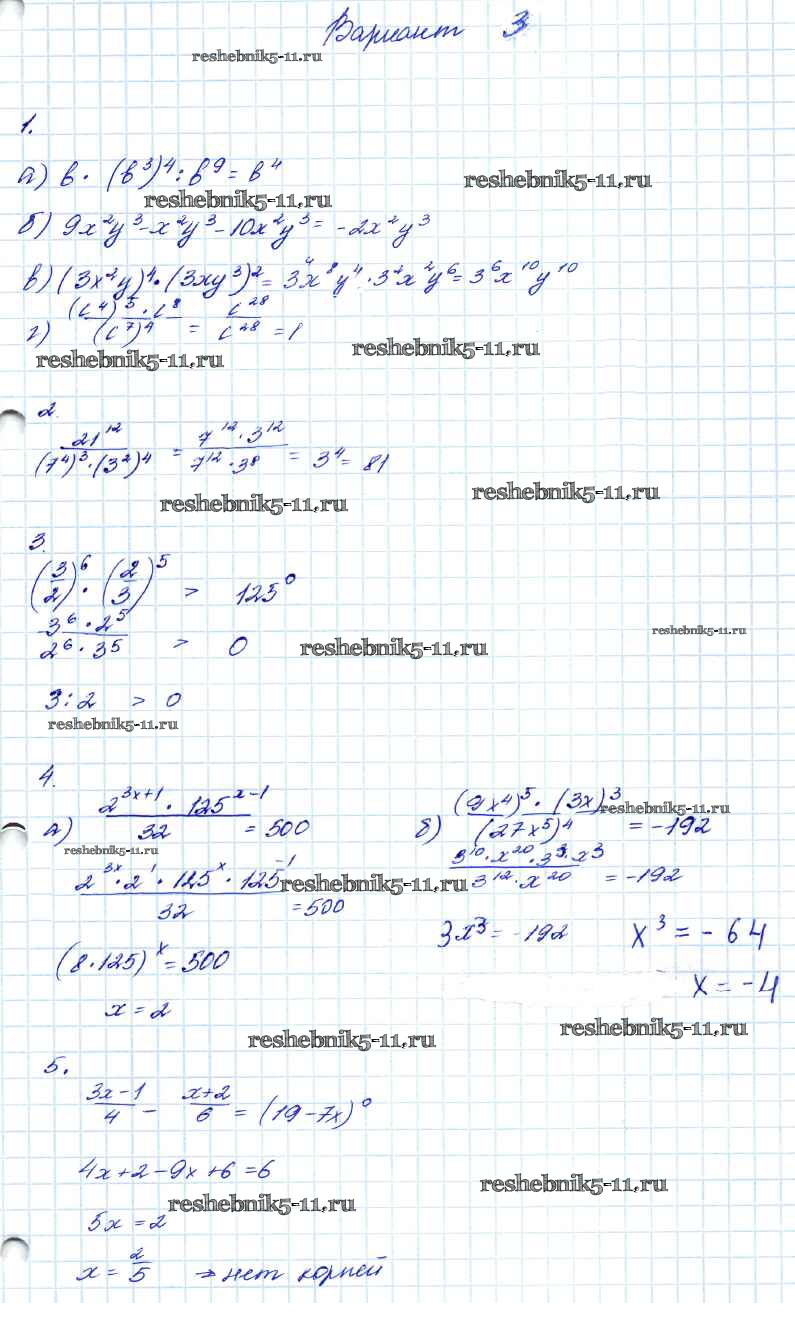 Вариант 3
reshebnik5-11.ru
1.
а) b · (b³)⁴ : b⁹ = b⁴
reshebnik5-11.ru reshebnik5-11.ru
б) 9x²y³ - x²y³ - 10x²y³ = -2x²y³
в) (3x²y)⁴ · (3xy³)² = 3⁴x⁸y⁴ · 3²x²y⁶ = 3⁶x¹⁰y¹⁰
г) (c⁴)⁵ · c⁸ / (c⁷)⁴ = c²⁸ / c²⁸ = 1
reshebnik5-11.ru reshebnik5-11.ru
2.
21¹² / (7⁴)³ · (3²)⁴ = 7¹² · 3¹² / 7¹² · 3⁸ = 3⁴ = 81
reshebnik5-11.ru reshebnik5-11.ru
3.
(3/2)⁶ · (2/3)⁵ > 125⁰
reshebnik5-11.ru
3⁶ · 2⁵ / 2⁶ · 3⁵ > 0
reshebnik5-11.ru
3 : 2 > 0
reshebnik5-11.ru
4.
а) 2³ˣ⁺¹ · 125ˣ⁻¹ / 32 = 500
reshebnik5-11.ru
2³ˣ · 2¹ · 125ˣ · 125⁻¹ / 32 = 500
reshebnik5-11.ru
(8 · 125)ˣ = 500
x = 2
б) (9x⁴)⁵ · (3x)³ / (27x⁵)⁴ = -192
reshebnik5-11.ru
3¹⁰ · x²⁰ · 3³ · x³ / 3¹² · x²⁰ = -192
3x³ = -192 x³ = -64
x = -4
reshebnik5-11.ru reshebnik5-11.ru
5.
3x-1 / 4 - x+2 / 6 = (19-7x)⁰
4x+2-9x+6=6
reshebnik5-11.ru reshebnik5-11.ru
5x = 2
x = 2/5 → нет корней